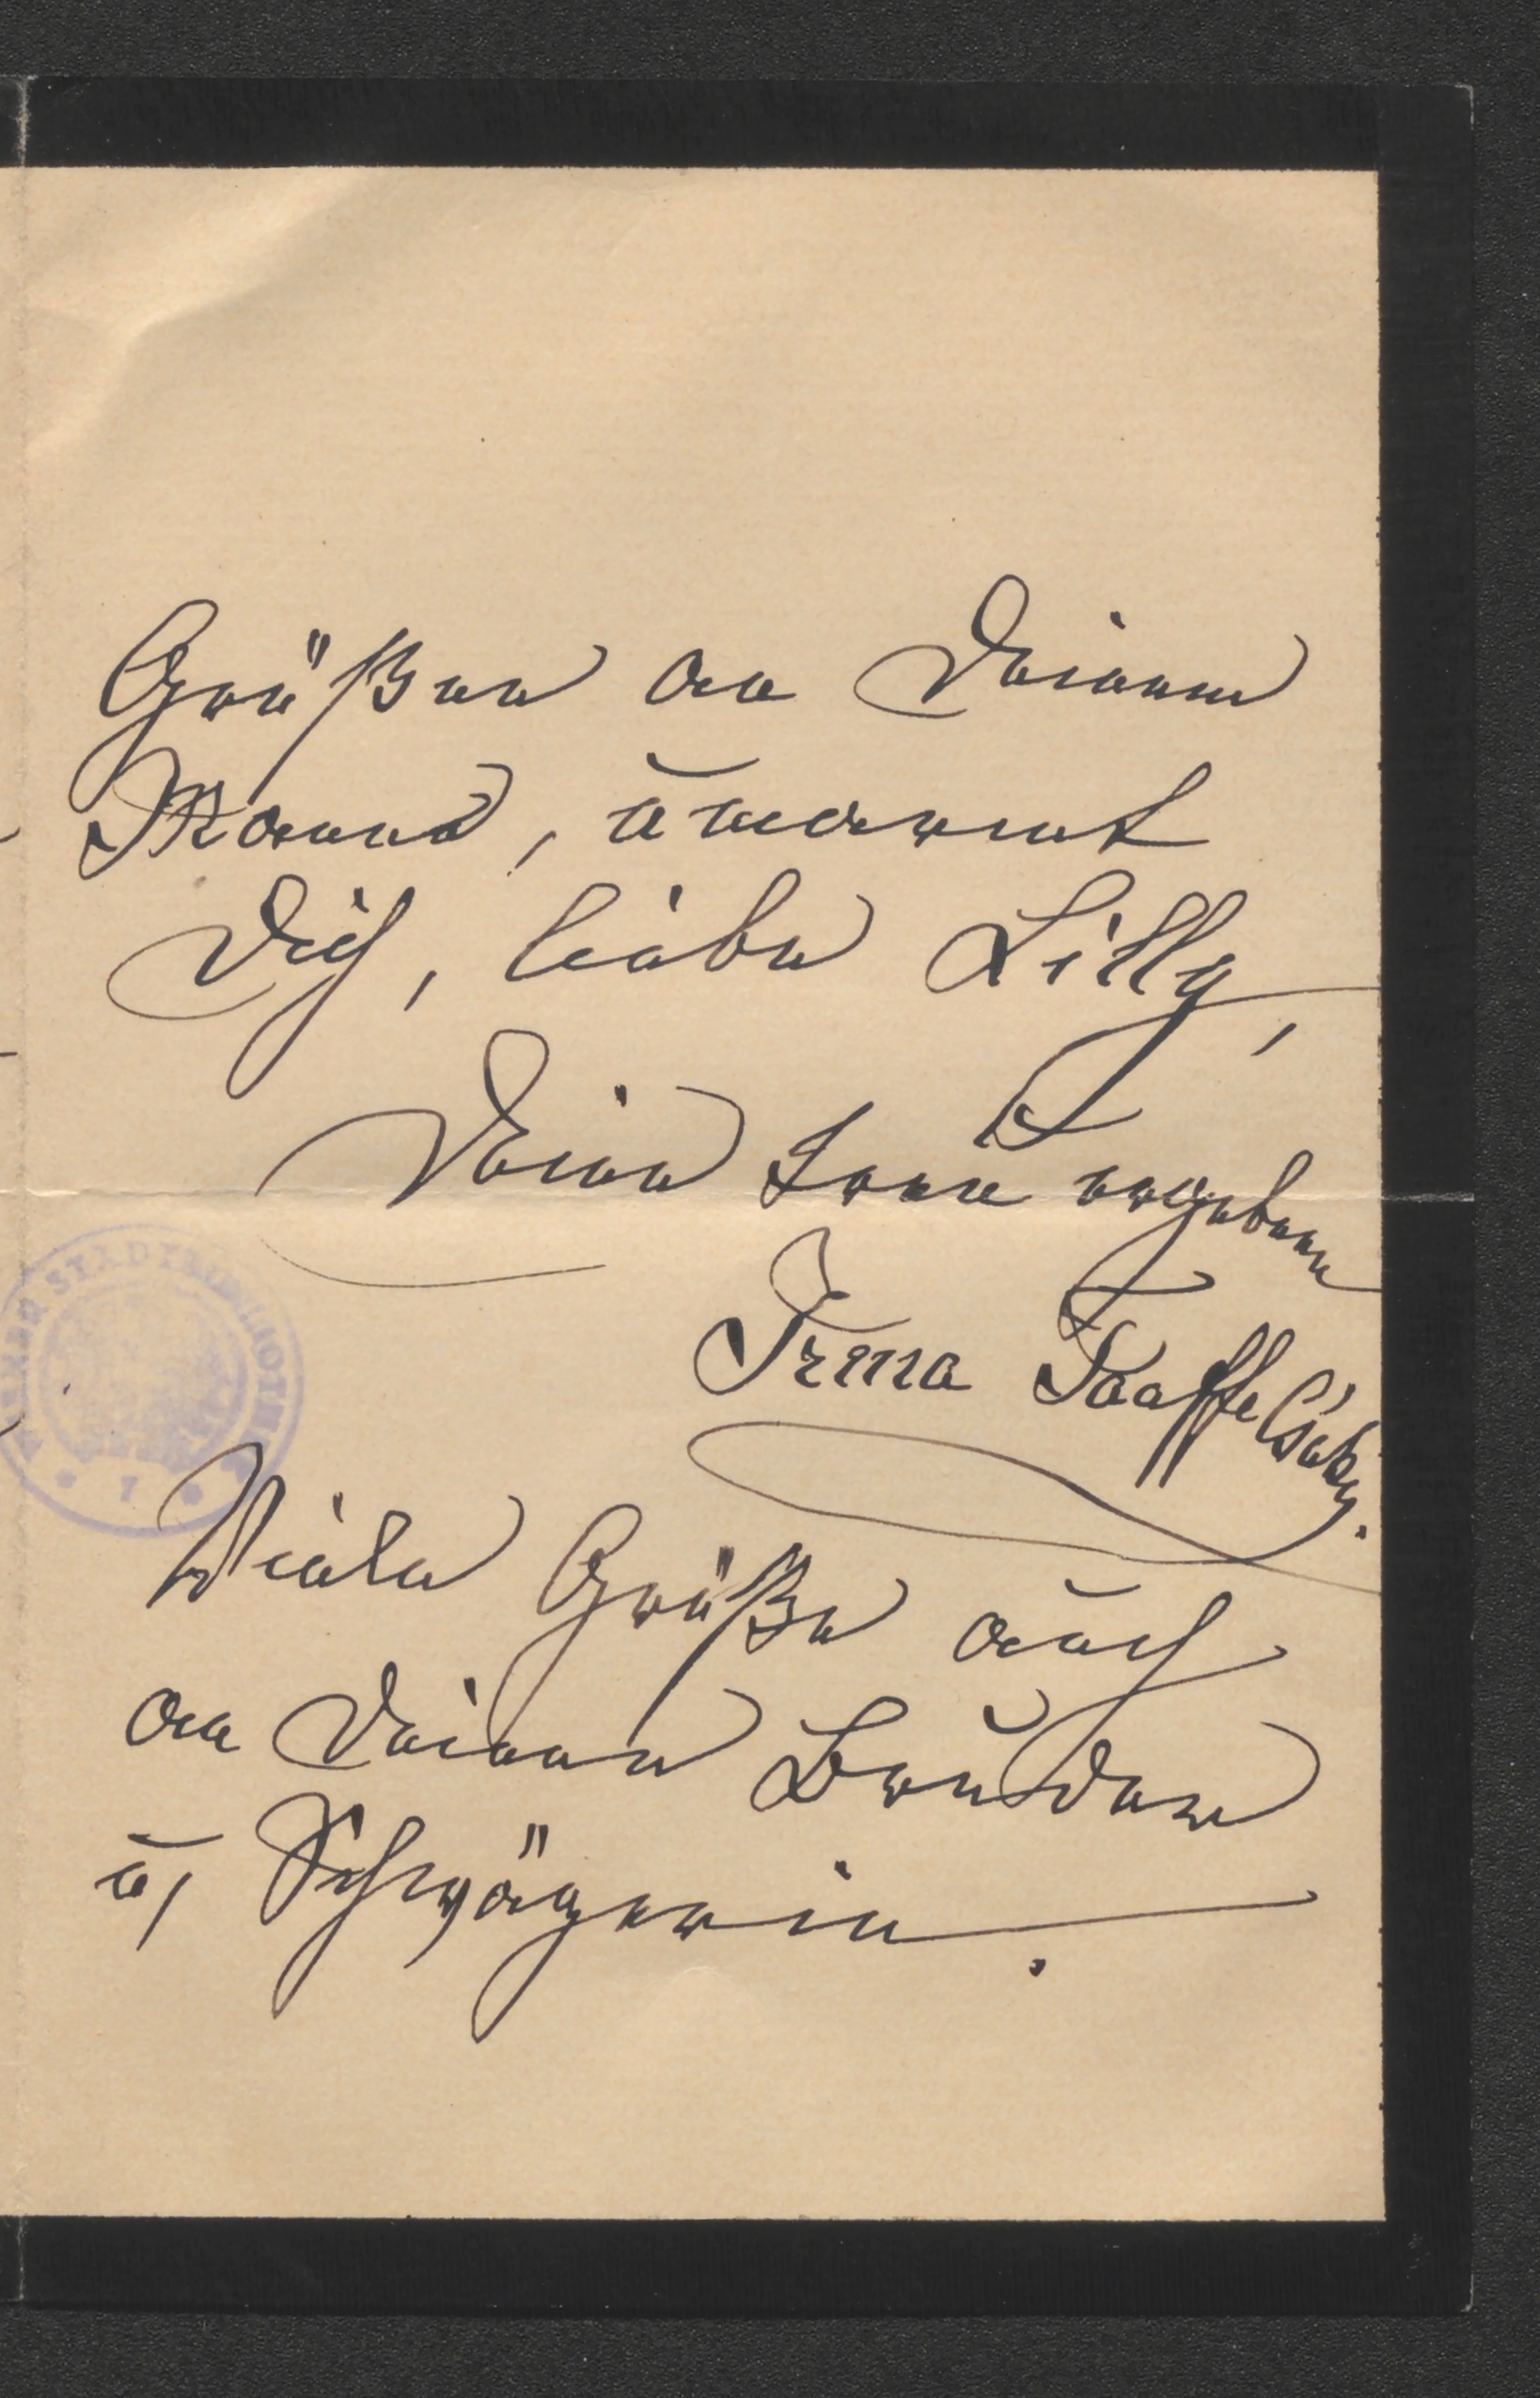 Grüßen an Deinen
Mann, umarmt
Dich, liebe Lilly,
Deine treu ergebene
Irma Taaffe Csáky.
Viele Grüße auch
an Deinen Bruder
u, Schwägerin.
7